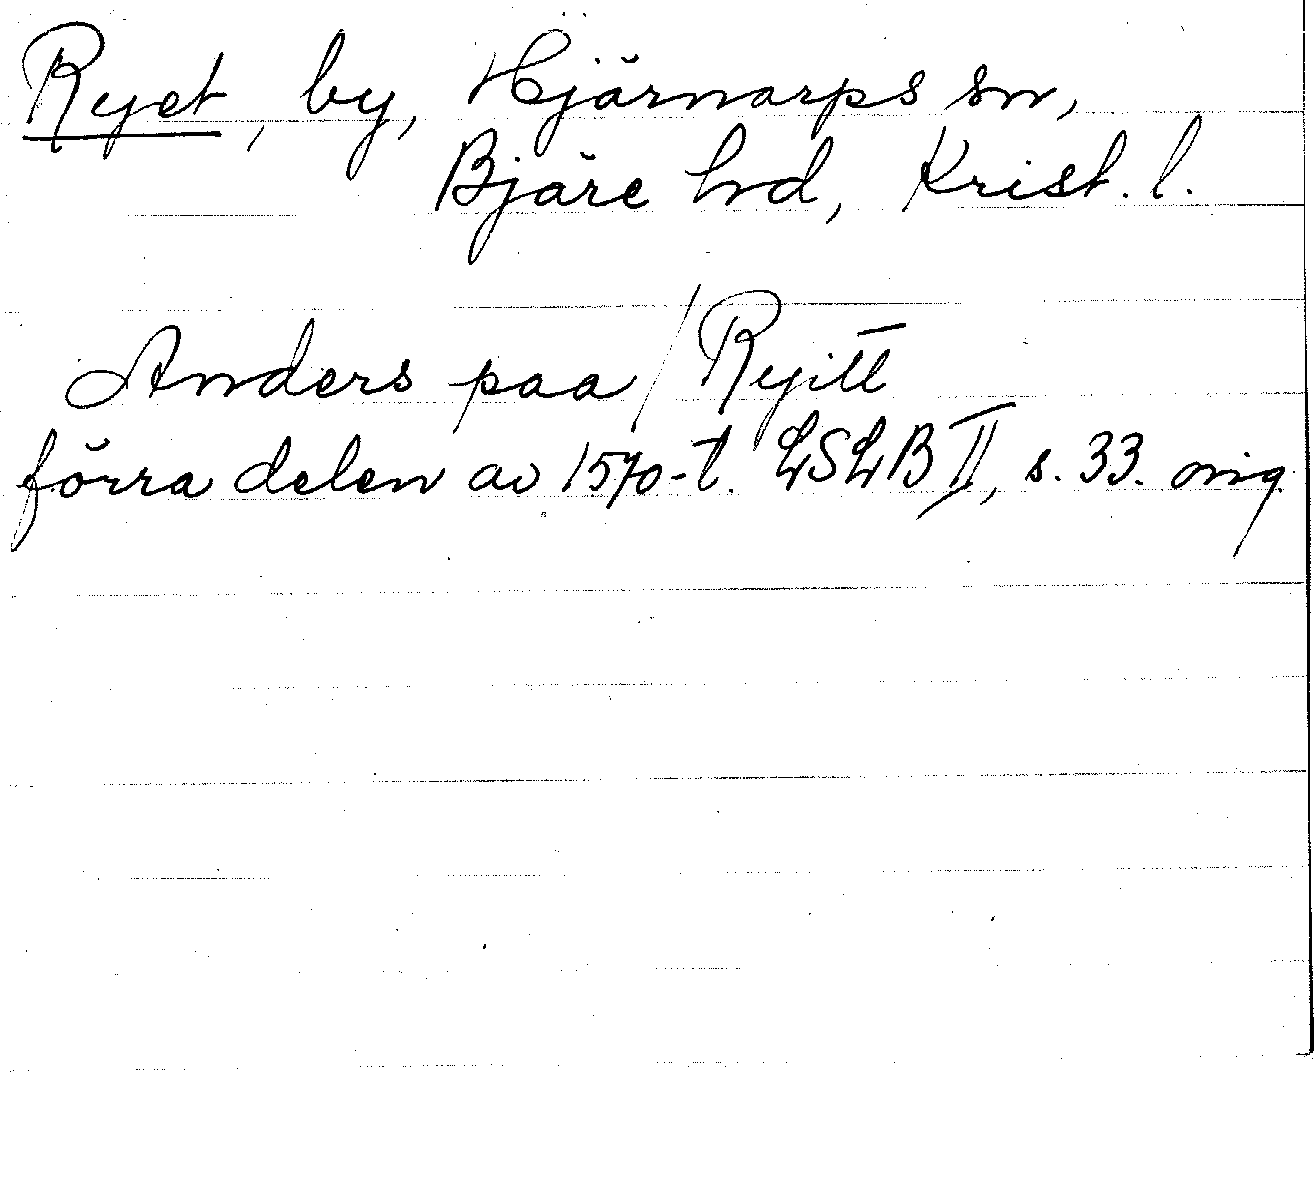 Ryet, by, Hjärnarps sn,
Bjäre hd, Krist. l.
Anders paa / Ryitt
förra delen av 1570-t. LSLB II, s. 33. orig.